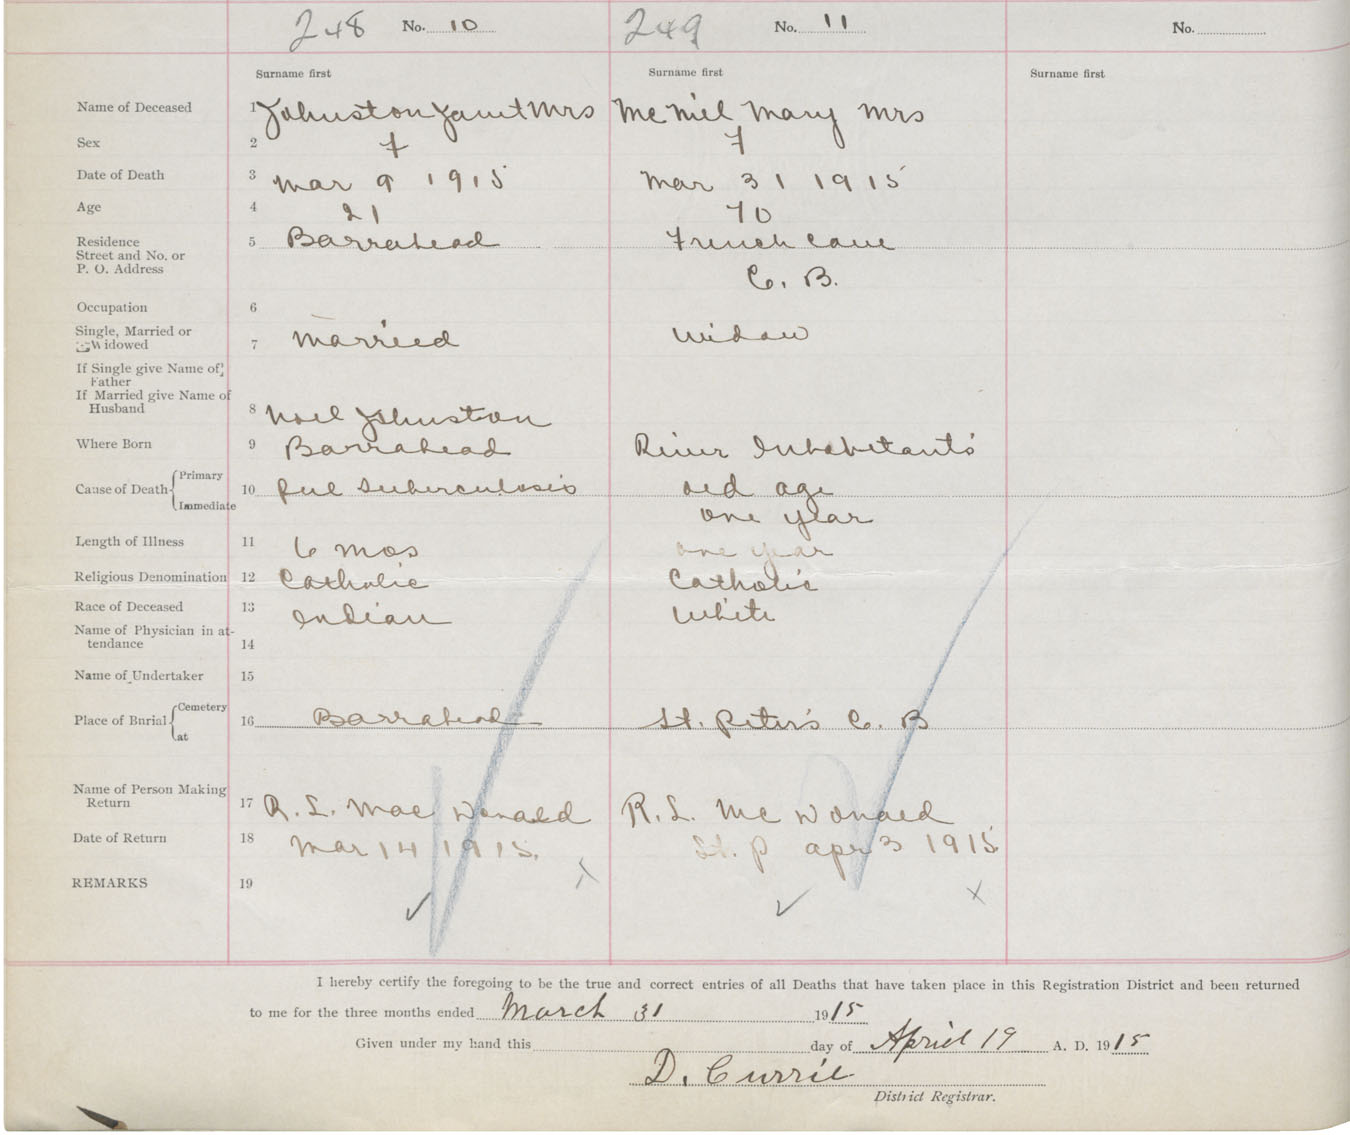 248 No. 10 249 No. 11 No.
Surname first Surname first Surname first
Name of Deceased 1 Johnston Janet Mrs McNiel Mary Mrs
Sex 2 F F
Date of Death 3 Mar 9 1915 Mar 31 1915
Age 4 21 70
Residence 5 Barrahead French Cove
Street and No. or
P. O. Address C. B.
Occupation 6
Single, Married or
Widowed 7 Married Widow
If Single give Name of
Father
If Married give Name of
Husband 8 Noel Johnston
Where Born 9 Barrahead River Inhabitants
Cause of Death Primary
10 Pul Tuberculosis old age
Immediate one year
Length of Illness 11 6 mos one year
Religious Denomination 12 Catholic Catholic
Race of Deceased 13 Indian White
Name of Physician in at-
tendance 14
Name of Undertaker 15
Place of Burial Cemetery
16 Barrahead St. Peter's C. B
at
Name of Person Making
Return 17 R. L. MacDonald R. L. McDonald
Date of Return 18 Mar 14 1915. St. P Apr 3 1915
REMARKS 19
I hereby certify the foregoing to be the true and correct entries of all Deaths that have taken place in this Registration District and been returned
to me for the three months ended March 31 1915
Given under my hand this day of April 19 A. D. 1915
D. Currie
District Registrar.